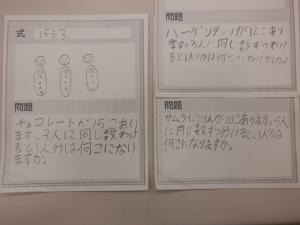 式 15÷3
問題
チョコレートが15こあり
ます。3人に同じ数ずつわけ
ると1人分は何こになり
ますか。
問題
ハーゲンダッツが12こあり
ます。3人に同じ数ずつわけ
ると1人分は何こになりますか。
問題
サムライのけんが10こあります。5人
に同じ数ずつ分けると、1人分は
何こになりますか。